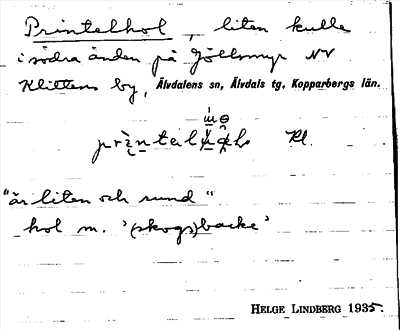 Printelhol, liten kulle
i södra änden på Göllsmyr NV
Klittens by, Älvdalens sn, Älvdals tg, Kopparbergs län.
Kl.
"är liten och rund"
hol m. '(skogs)backe'
HELGE LINDBERG 1935.